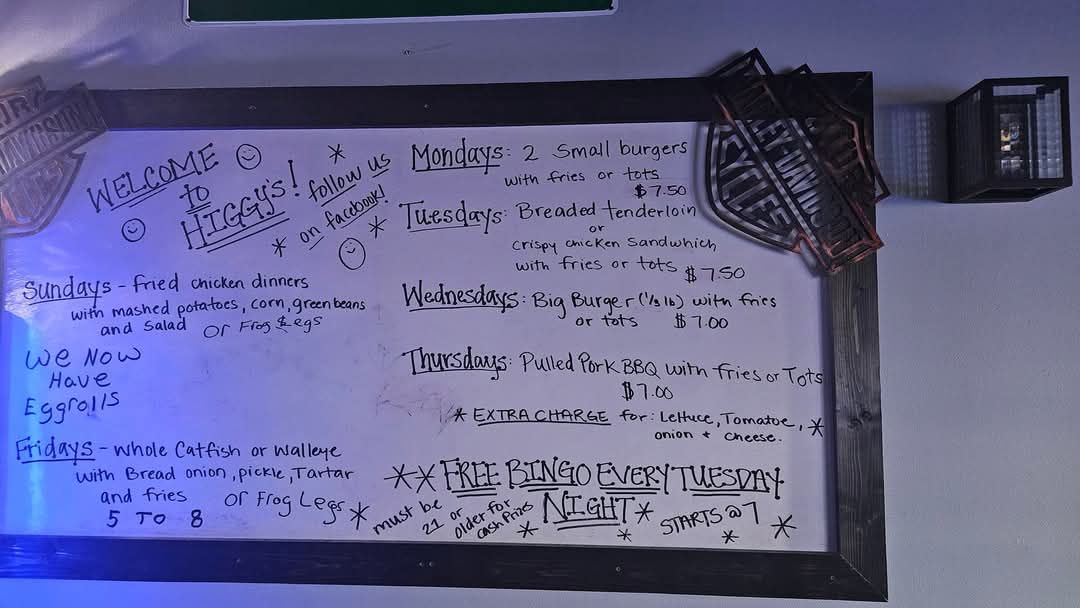 WELCOME
TO
HIGGY'S!
follow us
on facebook!
Sundays - fried chicken dinners
with mashed potatoes, corn, green beans
and salad or Frog Legs
We Now
Have
Eggrolls
Fridays - whole Catfish or walleye
with Bread onion, pickle, Tartar
and fries or Frog Legs
5 TO 8
Mondays: 2 Small burgers
with fries or tots
$7.50
Tuesdays: Breaded tenderloin
or
Crispy chicken Sandwhich
with fries or tots $7.50
Wednesdays: Big Burger (1/3 lb) with fries
or tots $7.00
Thursdays: Pulled Pork BBQ with fries or Tots
$7.00
* EXTRA CHARGE for: Lettuce, Tomatoe, *
onion + cheese.
** FREE BINGO EVERY TUESDAY
NIGHT *
must be
21 or
older for
cash prizes
STARTS @ 7
HARLEY-DAVIDSON
CYCLES